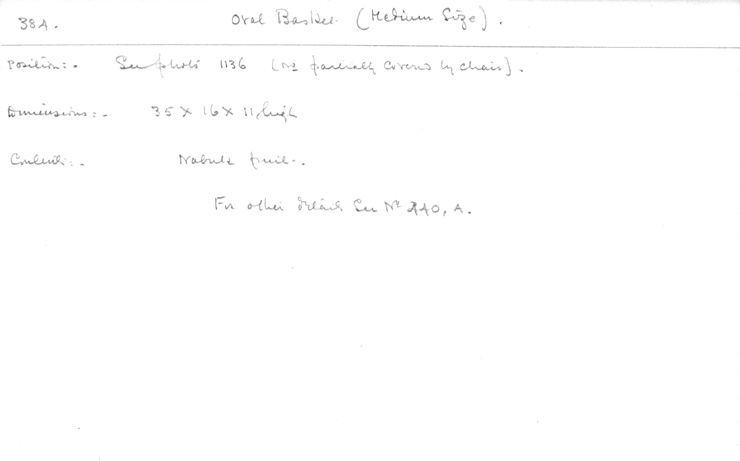 384. Oval Basket. (Medium Size).
Position:- See photo 1136 (No partially covered by chair).
Dimensions:- 35 X 16 X 11 high
Contents:- Nabuk fruit.
For other details See No 440, A.